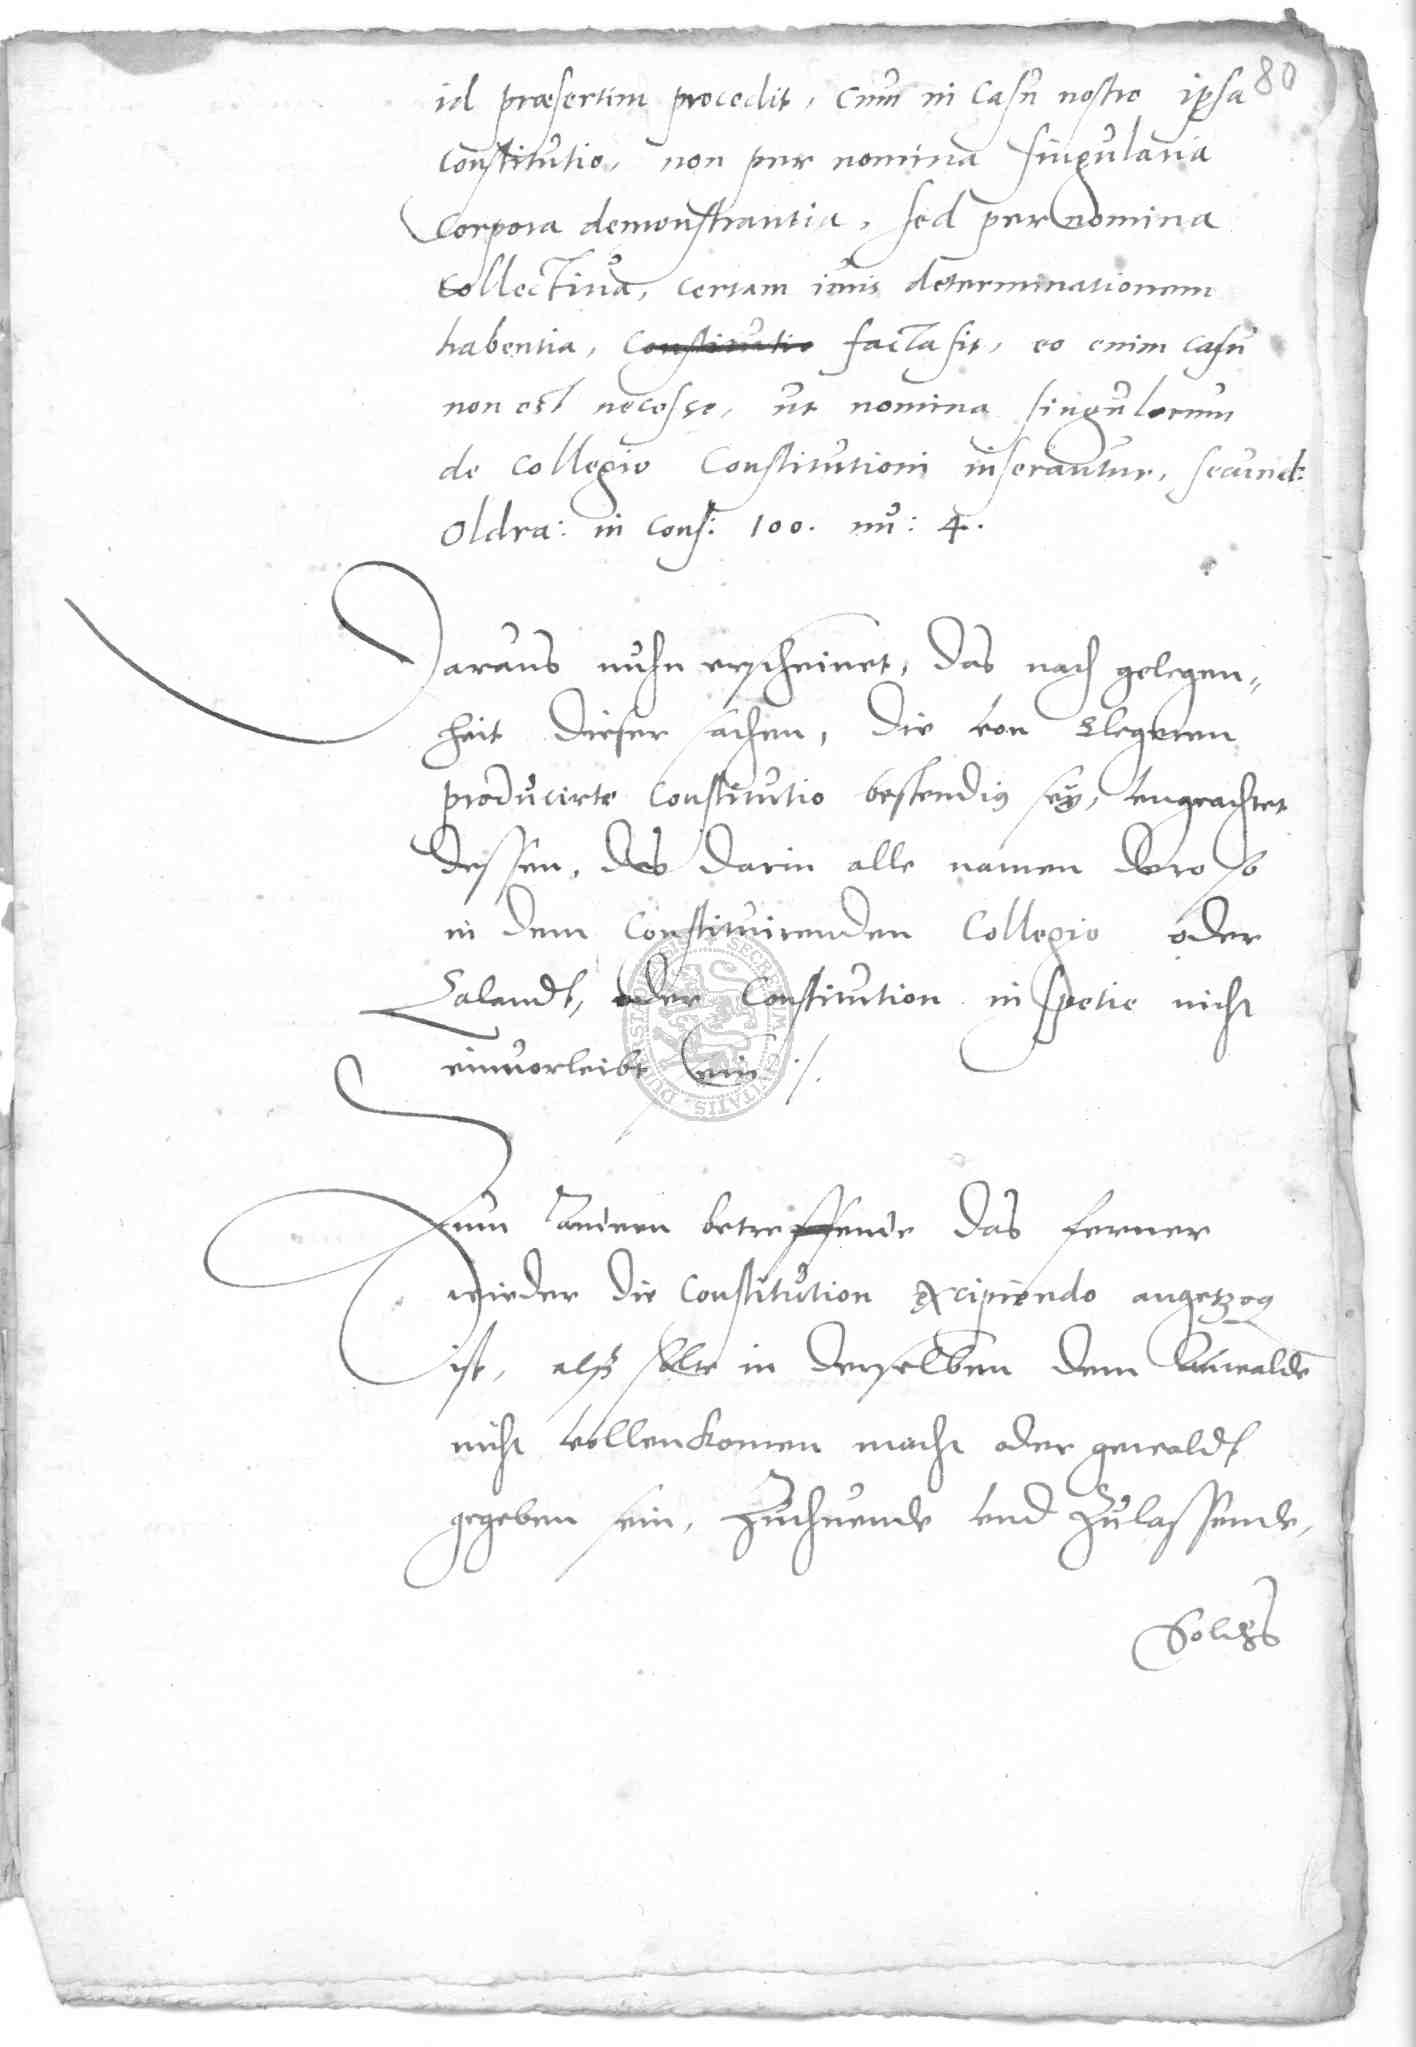 80
id præsertim procedit, cum in casu nostro ipsa
constitutio, non per nomina singularia
corpora demonstrantia, sed per nomina
collectiva, certam iuris determinationem
habentia, constitutio facta sit, eo enim casu
non est necesse, ut nomina singulorum
de collegio constitutioni inserantur, secund:
Oldra: in cons: 100. nu: 4.
Daraus nuhn erscheinet, das nach gelegen-
heit dieser sachen, die von Klegeren
producirte constitutio bestendig sey, vngeachtet
dessen, das darin alle namen dero so
in dem constituirenden Collegio oder
Calandt, oder Constitution in spetie nicht
einvorleibt sein ./.
Zum Anderen betreffende das ferner
wieder die constitution excipiendo angetzog
ist, alß solte in derselben dem Anwalde
nicht vollenkomen macht oder gewaldt
gegeben sein, zuthuende vnd zulassende,
Solchs
SECRETUM CIVITATIS